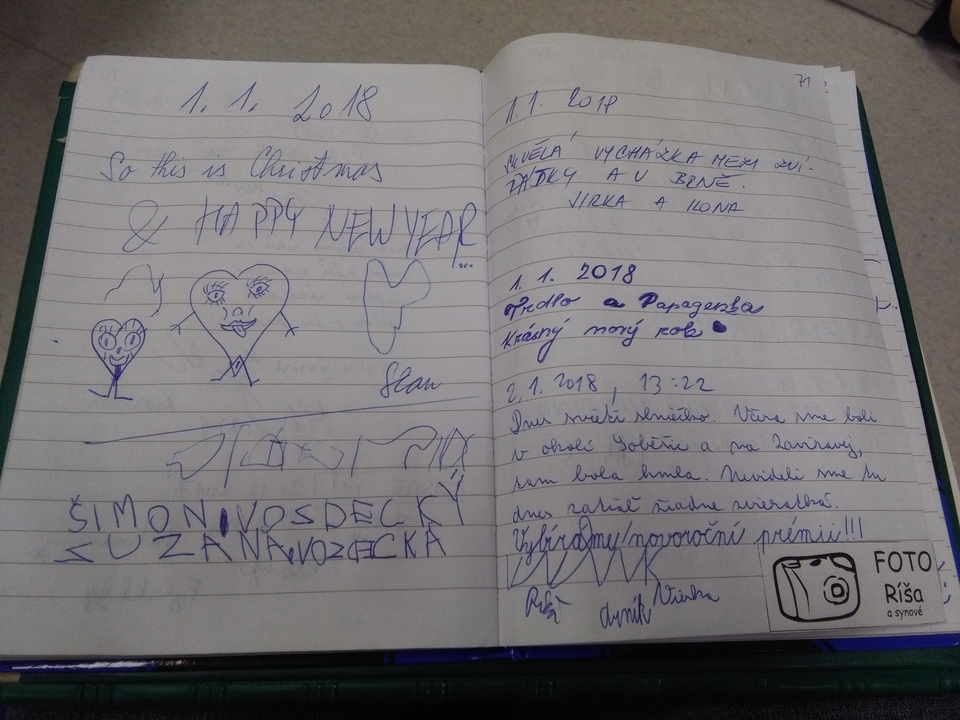 1. 1. 2018
So this is Christmas
& HAPPY NEW YEAR
Sean
ŠIMON VOSDECKÝ
SUZANA VOZDECKA
71
1.1. 2018
SKVĚLÁ VYCHÁZKA MEZI ZVÍ-
ŘÁTKY A V BRNĚ.
JIRKA A ILONA
1. 1. 2018
Trdlo a Papagenka
Krásný nový rok
2.1. 2018, 13:22
Dnes svieti slniečko. Včera sme boli
v okolí Soběšic a na Zamilovanej,
tam bola hmla. Nevideli sme tu
dnes zatiaľ žiadne zvieratká.
Vybíráme novoroční prémii!!!
Ríša
dyník Vierka
FOTO
Ríša
a synové